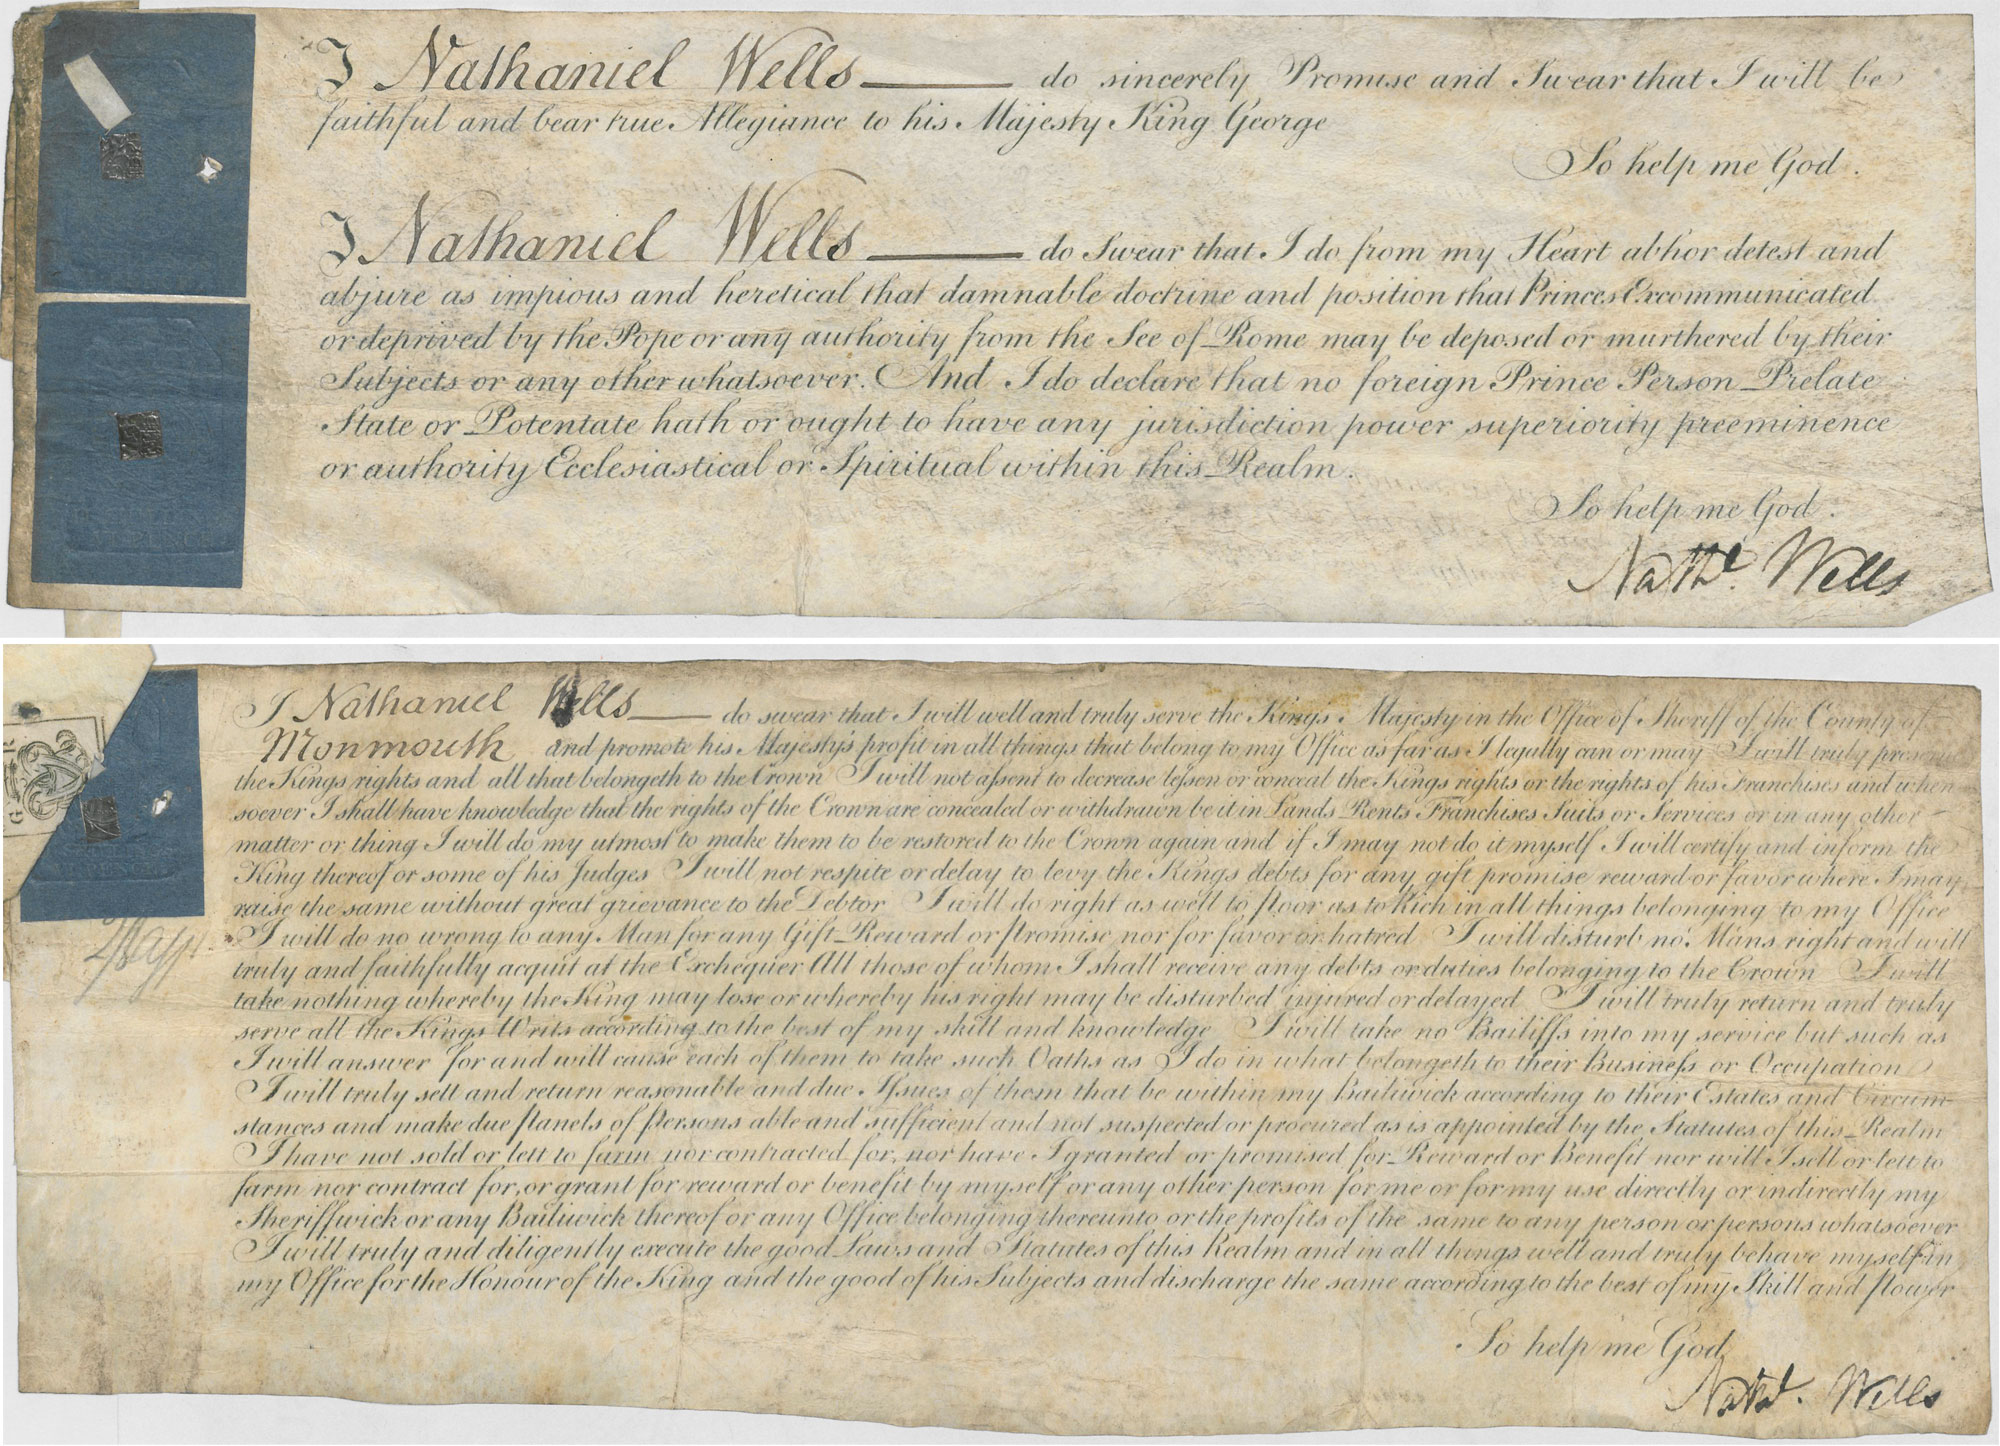 I Nathaniel Wells do sincerely Promise and Swear that I will be
faithful and bear true Allegiance to his Majesty King George
So help me God.
I Nathaniel Wells do Swear that I do from my Heart abhor detest and
abjure as impious and heretical that damnable doctrine and position that Princes Excommunicated
or deprived by the Pope or any authority from the See of Rome may be deposed or murthered by their
Subjects or any other whatsoever. And I do declare that no foreign Prince Person Prelate
State or Potentate hath or ought to have any jurisdiction power superiority preeminence
or authority Ecclesiastical or Spiritual within this Realm.
So help me God.
Nathl. Wells
I Nathaniel Wells do swear that I will well and truly serve the Kings Majesty in the Office of Sheriff of the County of
Monmouth and promote his Majesty's profit in all things that belong to my Office as far as I legally can or may I will truly preserve
the Kings rights and all that belongeth to the Crown I will not assent to decrease lessen or conceal the Kings rights or the rights of his Franchises and when
soever I shall have knowledge that the rights of the Crown are concealed or withdrawn be it in Lands Rents Franchises Suits or Services or in any other
matter or thing I will do my utmost to make them to be restored to the Crown again and if I may not do it myself I will certify and inform the
King thereof or some of his Judges I will not respite or delay to levy the Kings debts for any gift promise reward or favor where I may
raise the same without great grievance to the Debtor I will do right as well to Poor as to Rich in all things belonging to my Office
I will do no wrong to any Man for any Gift Reward or Promise nor for favor or hatred I will disturb no Mans right and will
truly and faithfully acquit at the Exchequer All those of whom I shall receive any debts or duties belonging to the Crown I will
take nothing whereby the King may lose or whereby his right may be disturbed injured or delayed I will truly return and truly
serve all the Kings Writs according to the best of my skill and knowledge I will take no Bailiffs into my service but such as
I will answer for and will cause each of them to take such Oaths as I do in what belongeth to their Business or Occupation
I will truly sett and return reasonable and due Issues of them that be within my Bailiwick according to their Estates and Circum-
stances and make due Panels of Persons able and sufficient and not suspected or procured as is appointed by the Statutes of this Realm
I have not sold or lett to farm nor contracted for, nor have I granted or promised for Reward or Benefit nor will I sell or lett to
farm nor contract for, or grant for reward or benefit by myself or any other person for me or for my use directly or indirectly my
Sheriffwick or any Bailiwick thereof or any Office belonging thereunto or the profits of the same to any person or persons whatsoever
I will truly and diligently execute the good Laws and Statutes of this Realm and in all things well and truly behave myself in
my Office for the Honour of the King and the good of his Subjects and discharge the same according to the best of my Skill and Power
So help me God
Nathl. Wells